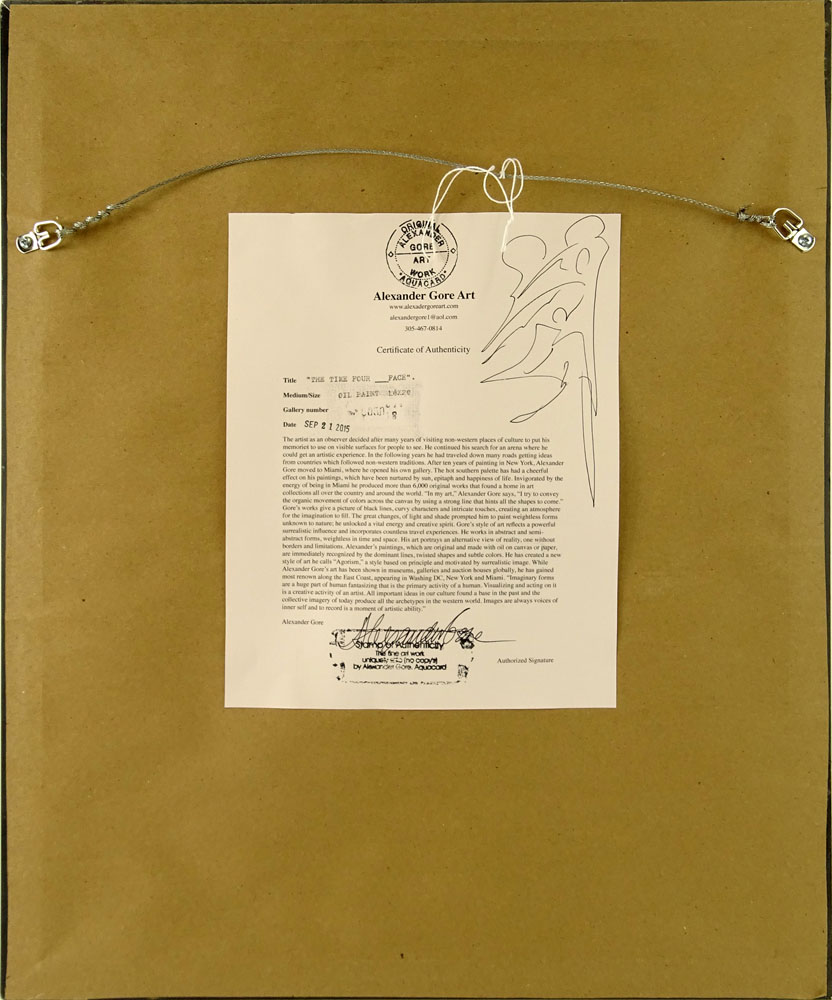 ORIGINAL
ALEXANDER
GORE
ART
WORK
"AQUACARD"
Alexander Gore Art
www.alexadergoreart.com
alexandergore1@aol.com
305-467-0814
Certificate of Authenticity
Title "THE TIME FOUR ___FACE".
Medium/Size OIL PAINT
Gallery number
Date SEP 21 2015
The artist as an observer decided after many years of visiting non-western places of culture to put his
memoriet to use on visible surfaces for people to see. He continued his search for an arena where he
could get an artistic experience. In the following years he had traveled down many roads getting ideas
from countries which followed non-western traditions. After ten years of painting in New York, Alexander
Gore moved to Miami, where he opened his own gallery. The hot southern palette has had a cheerful
effect on his paintings, which have been nurtured by sun, epitaph and happiness of life. Invigorated by the
energy of being in Miami he produced more than 6,000 original works that found a home in art
collections all over the country and around the world. "In my art," Alexander Gore says, "I try to convey
the organic movement of colors across the canvas by using a strong line that hints all the shapes to come."
Gore's works give a picture of black lines, curvy characters and intricate touches, creating an atmosphere
for the imagination to fill. The great changes, of light and shade prompted him to paint weightless forms
unknown to nature; he unlocked a vital energy and creative spirit. Gore's style of art reflects a powerful
surrealistic influence and incorporates countless travel experiences. He works in abstract and semi-
abstract forms, weightless in time and space. His art portrays an alternative view of reality, one without
borders and limitations. Alexander's paintings, which are original and made with oil on canvas or paper,
are immediately recognized by the dominant lines, twisted shapes and subtle colors. He has created a new
style of art he calls "Agorism," a style based on principle and motivated by surrealistic image. While
Alexander Gore's art has been shown in museums, galleries and auction houses globally, he has gained
most renown along the East Coast, appearing in Washing DC, New York and Miami. "Imaginary forms
are a huge part of human fantasizing that is the primary activity of a human. Visualizing and acting on it
is a creative activity of an artist. All important ideas in our culture found a base in the past and the
collective imagery of today produce all the archetypes in the western world. Images are always voices of
inner self and to record is a moment of artistic ability."
Alexander Gore
Alexander Gore
Stamp of Authenticity
This fine art work
uniquely (no copys)
by Alexander Gore. Aquacard
Authorized Signature